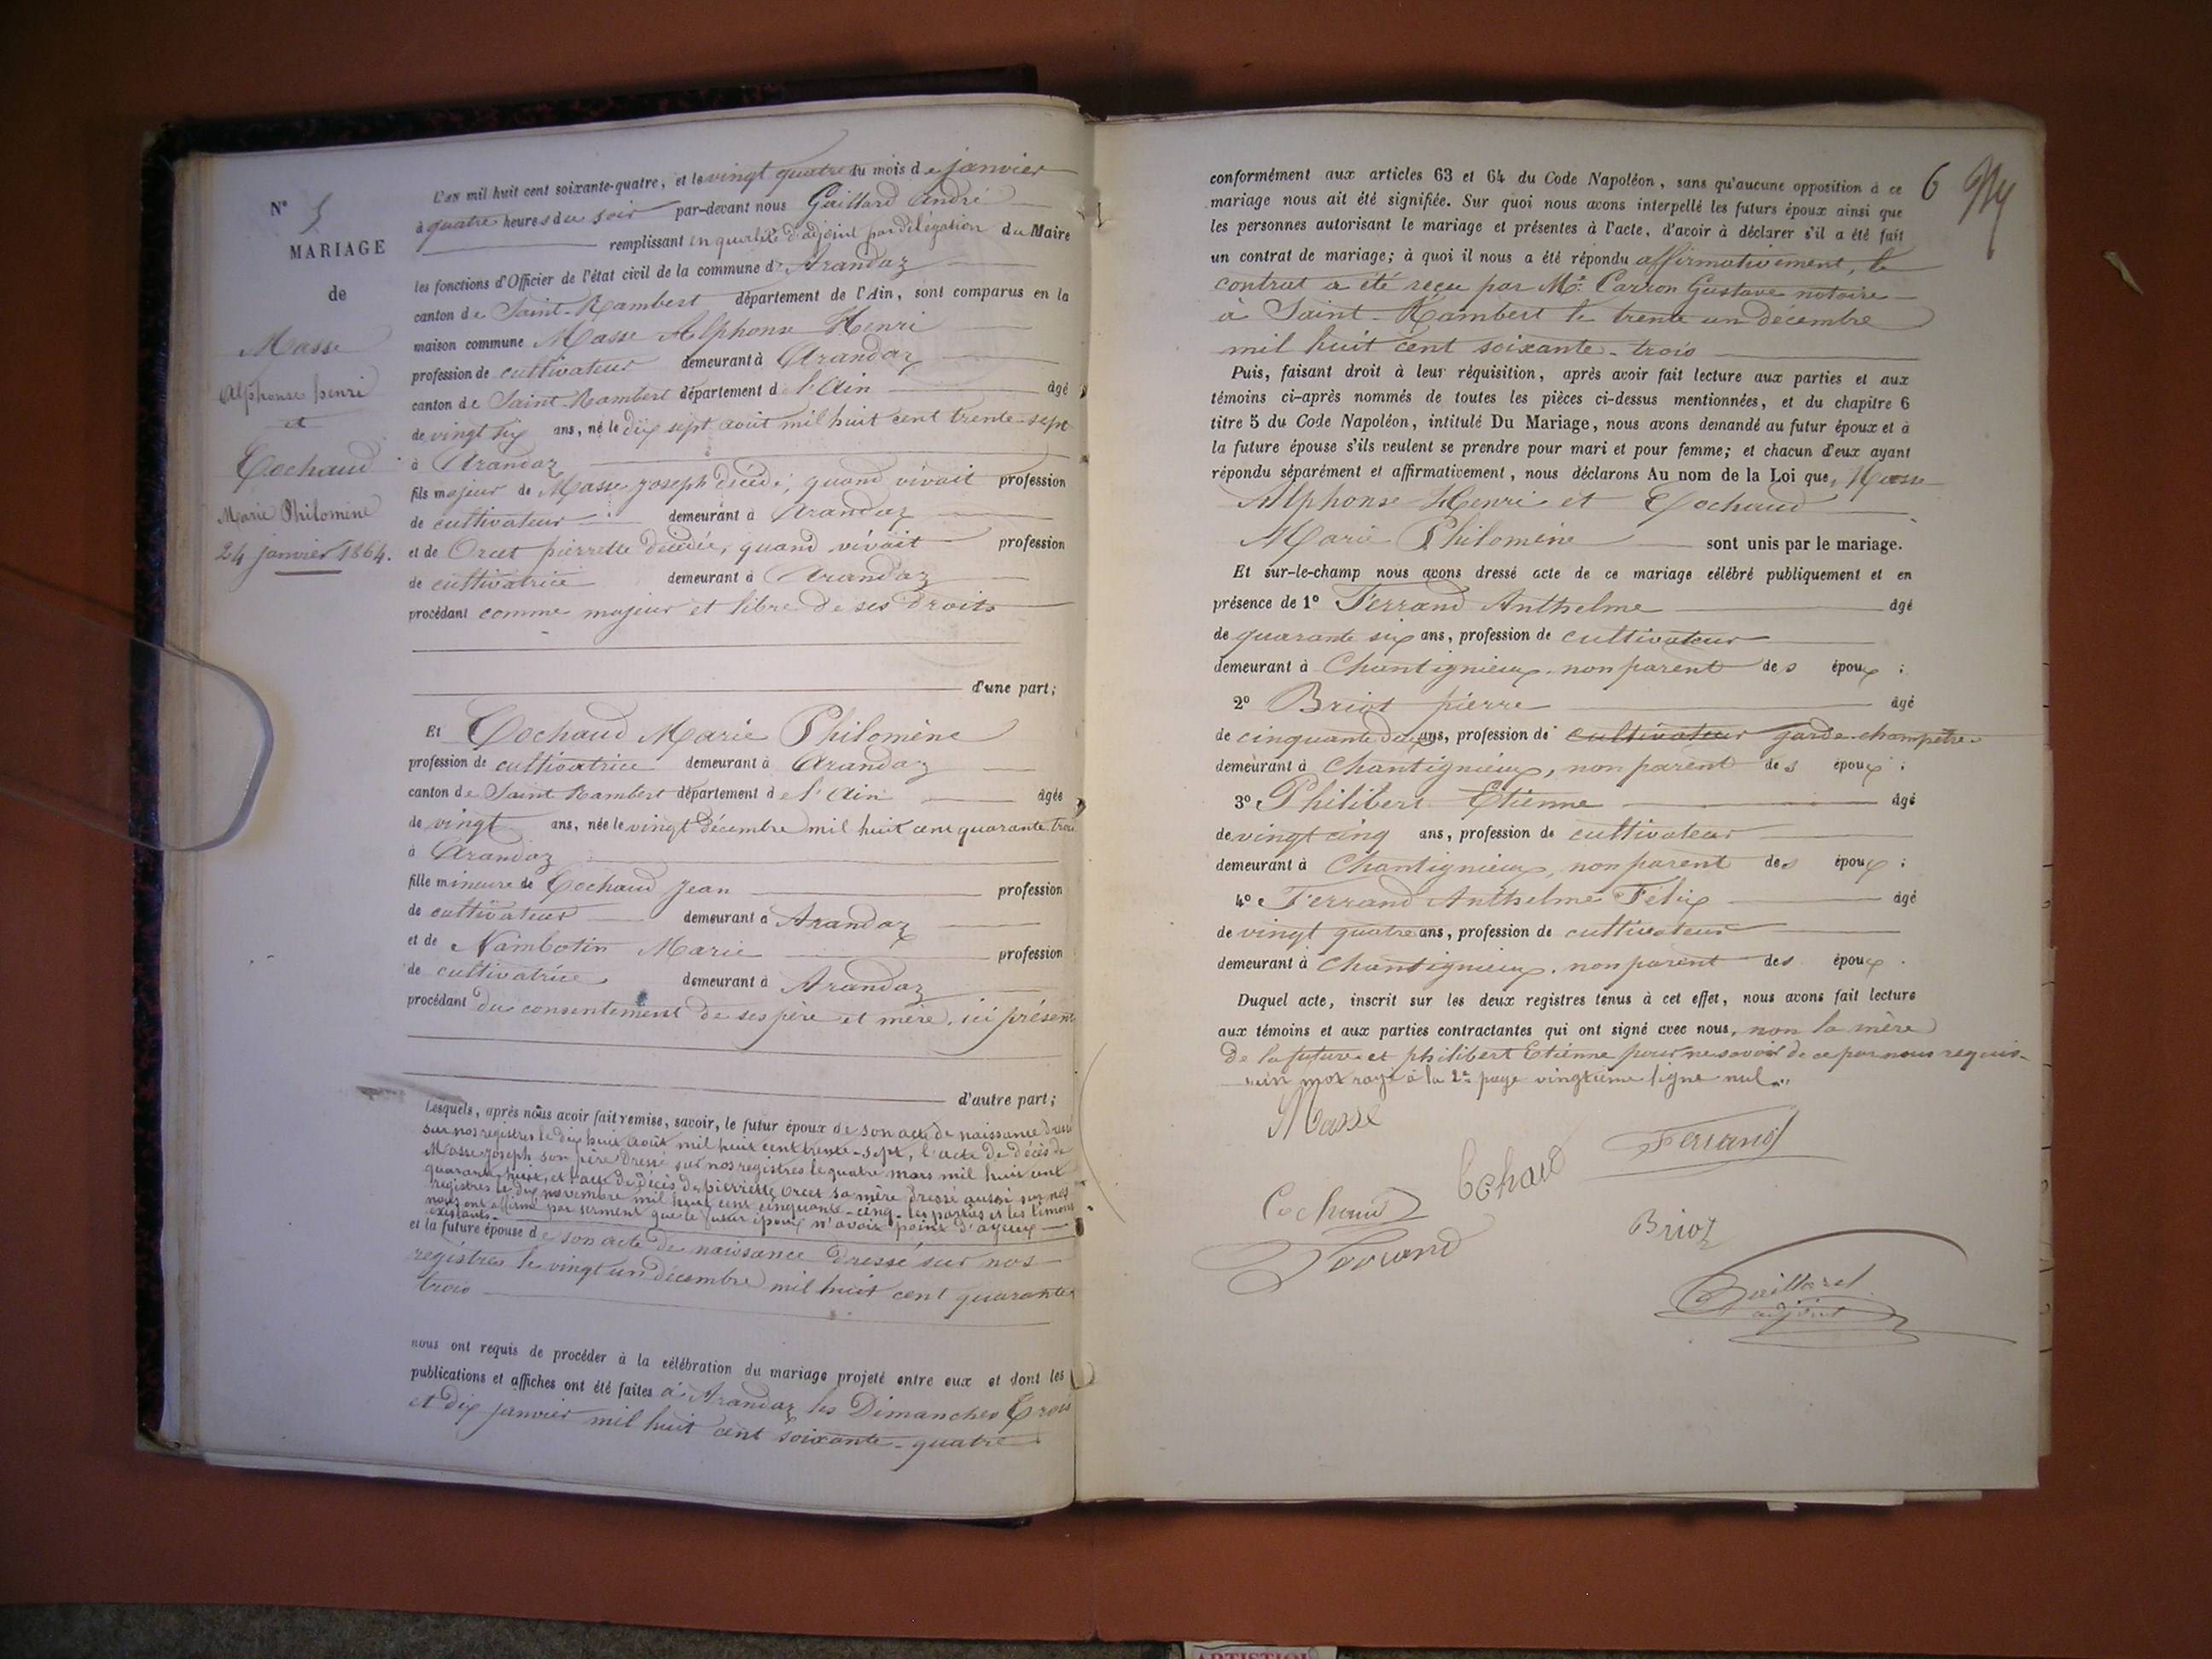 N° 5
MARIAGE
de
Masse
Alphonse henri
et
Cochaud
Marie Philomène
24 janvier 1864.
L'an mil huit cent soixante-quatre, et le vingt quatre du mois de janvier
à quatre heures du soir par-devant nous Gaillard André
remplissant en qualité d'adjoint par délégation du Maire
les fonctions d'Officier de l'état civil de la commune d' Arandaz
canton de Saint-Rambert département de l'Ain, sont comparus en la
maison commune Masse Alphonse Henri
profession de cultivateur demeurant à Arandaz
canton de Saint Rambert département de l'Ain âgé
de vingt six ans, né le dix sept août mil huit cent trente-sept
à Arandaz
fils majeur de Masse Joseph décédé, quand vivait profession
de cultivateur demeurant à Arandaz
et de Orcet pierrette décédée, quand vivait profession
de cultivatrice demeurant à Arandaz
procédant comme majeur et libre de ses droits
d'une part;
Et Cochaud Marie Philomène
profession de cultivatrice demeurant à Arandaz
canton de Saint Rambert département de l'Ain âgée
de vingt ans, née le vingt décembre mil huit cent quarante trois
à Arandaz
fille mineure de Cochaud Jean profession
de cultivateur demeurant à Arandaz
et de Nambotin Marie profession
de cultivatrice demeurant à Arandaz
procédant du consentement de ses père et mère, ici présents
d'autre part;
Lesquels, après nous avoir fait remise, savoir, le futur époux de son acte de naissance dressé
sur nos registres le dix huit août mil huit cent trente-sept, l'acte de décès de
Masse Joseph son père dressé sur nos registres le quatre mars mil huit cent
quarante huit, et l'acte de décès de pierrette Orcet sa mère dressé aussi sur nos
registres le dix novembre mil huit cent cinquante-cinq. les parties et les témoins
nous ont affirmé par serment que le futur époux n'avait point d'ayeux
existants.
et la future épouse de son acte de naissance dressé sur nos
registres le vingt un décembre mil huit cent quarante
trois
nous ont requis de procéder à la célébration du mariage projeté entre eux et dont les
publications et affiches ont été faites à Arandaz les Dimanches Trois
et dix janvier mil huit cent soixante-quatre
6
conformément aux articles 63 et 64 du Code Napoléon, sans qu'aucune opposition à ce
mariage nous ait été signifiée. Sur quoi nous avons interpellé les futurs époux ainsi que
les personnes autorisant le mariage et présentes à l'acte, d'avoir à déclarer s'il a été fait
un contrat de mariage; à quoi il nous a été répondu affirmativement, le
contrat a été reçu par Me Carron Gustave notaire
à Saint-Rambert le trente un decembre
mil huit cent soixante-trois
Puis, faisant droit à leur réquisition, après avoir fait lecture aux parties et aux
témoins ci-après nommés de toutes les pièces ci-dessus mentionnées, et du chapitre 6
titre 5 du Code Napoléon, intitulé Du Mariage, nous avons demandé au futur époux et à
la future épouse s'ils veulent se prendre pour mari et pour femme; et chacun d'eux ayant
répondu séparément et affirmativement, nous déclarons Au nom de la Loi que, Masse
Alphonse Henri et Cochaud
Marie Philomène sont unis par le mariage.
Et sur-le-champ nous avons dressé acte de ce mariage célébré publiquement et en
présence de 1° Ferrand Anthelme âgé
de quarante six ans, profession de cultivateur
demeurant à Chantignieux, non parent des époux;
2° Briot pierre âgé
de cinquante deux ans, profession de cultivateur garde-champêtre
demeurant à Chantignieux, non parent des époux;
3° Philibert Etienne âgé
de vingt cinq ans, profession de cultivateur
demeurant à Chantignieux, non parent des époux;
4° Ferrand Anthelme Félix âgé
de vingt quatre ans, profession de cultivateur
demeurant à Chantignieux, non parent des époux.
Duquel acte, inscrit sur les deux registres tenus à cet effet, nous avons fait lecture
aux témoins et aux parties contractantes qui ont signé avec nous, non la mère
de la future et philibert Etienne pour ne savoir de ce par nous requis.
un mot rayé à la 2e page vingtième ligne nul.
Masse
Ferrand
Cochaud
Briot
Ferrand
Gaillard
adjoint